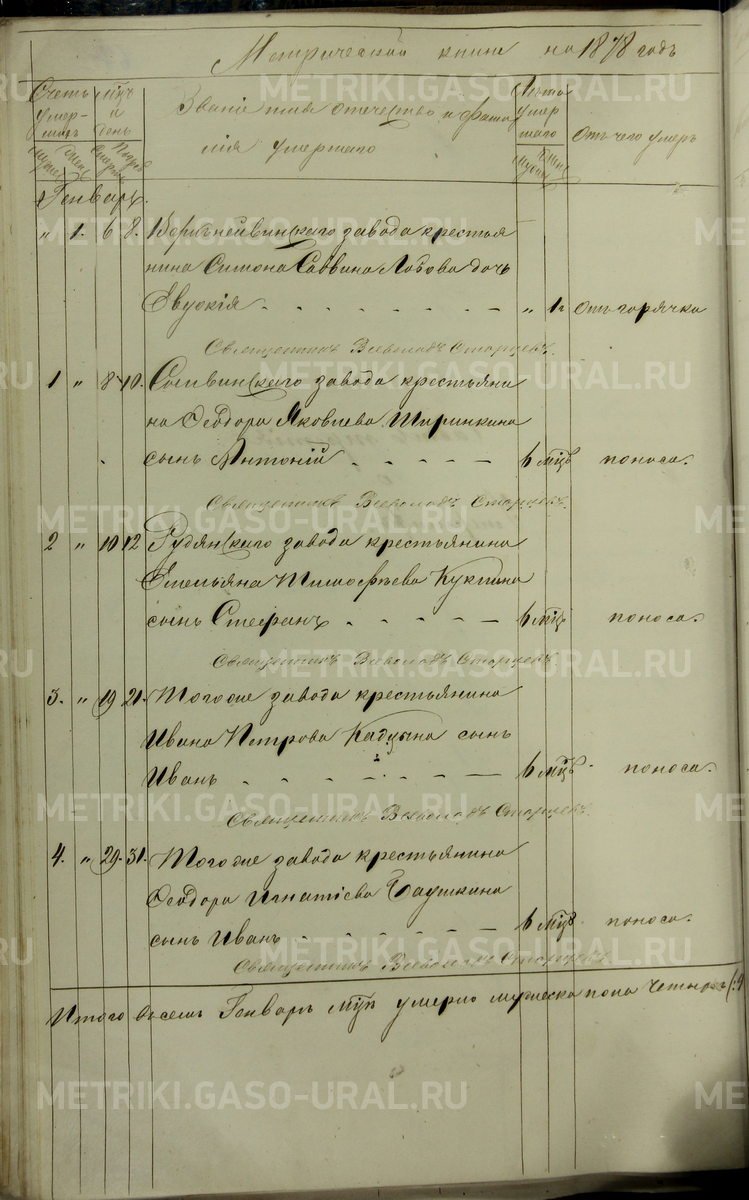 Метрической книги на 1878 годъ
Счетъ умершихъ
мужес. женс.
Мцъ и день
Смерти Погреб
Званіе имя отечество и фамилія умершаго
Лѣта умершаго
Мужес женс
Отъ чего умеръ
Генварь.
" 1. 6 8. Верхнейвинскаго завода крестья
нина Симона Саввина Лобова дочь
Евдокія - - - - - - - - " 1 г Отъ горячки
Священникъ Всеволодъ Старцевъ.
1 " 8 10. Сылвинскаго завода крестьяни
на Ѳеодора Яковлева Ширинкина
сынъ Антоній - - - - - 6 мцъ поноса.
Священникъ Всеволодъ Старцевъ.
2 " 10 12 Рудянскаго завода крестьянина
Емельяна Тимоѳеева Куклина
сынъ Стефанъ - - - - - 6 мцъ поноса.
Священникъ Всеволодъ Старцевъ.
3. " 19 21. Тогоже завода крестьянина
Ивана Петрова Кадцына сынъ
Иванъ - - - - - - - 6 мцъ поноса.
Священникъ Всеволодъ Старцевъ.
4. " 29. 31. Тогоже завода крестьянина
Ѳеодора Игнатіева Баушкина
сынъ Иванъ - - - - - - 6 мцъ. поноса.
Священникъ Всеволодъ Старцевъ.
Итого восемь Генварь мцѣ умерло мужеска пола четыре (:4
METRIKI.GASO-URAL.RU